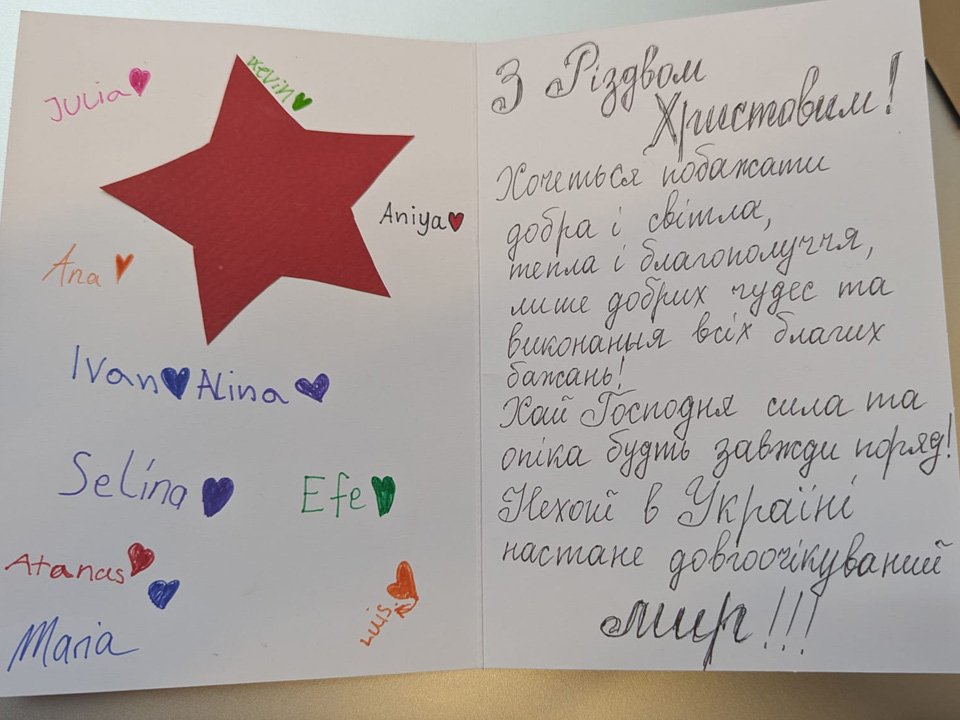 Julia
Kevin
Aniya
Ana
Ivan Alina
Selina
Efe
Atanas
Luis
Maria
З Різдвом
Христовим!
Хочеться побажати
добра і світла,
тепла і благополуччя,
лише добрих чудес та
виконання всіх благих
бажань!
Хай Господня сила та
опіка будть завжди поряд!
Нехай в Україні
настане довгоочікуваний
мир!!!